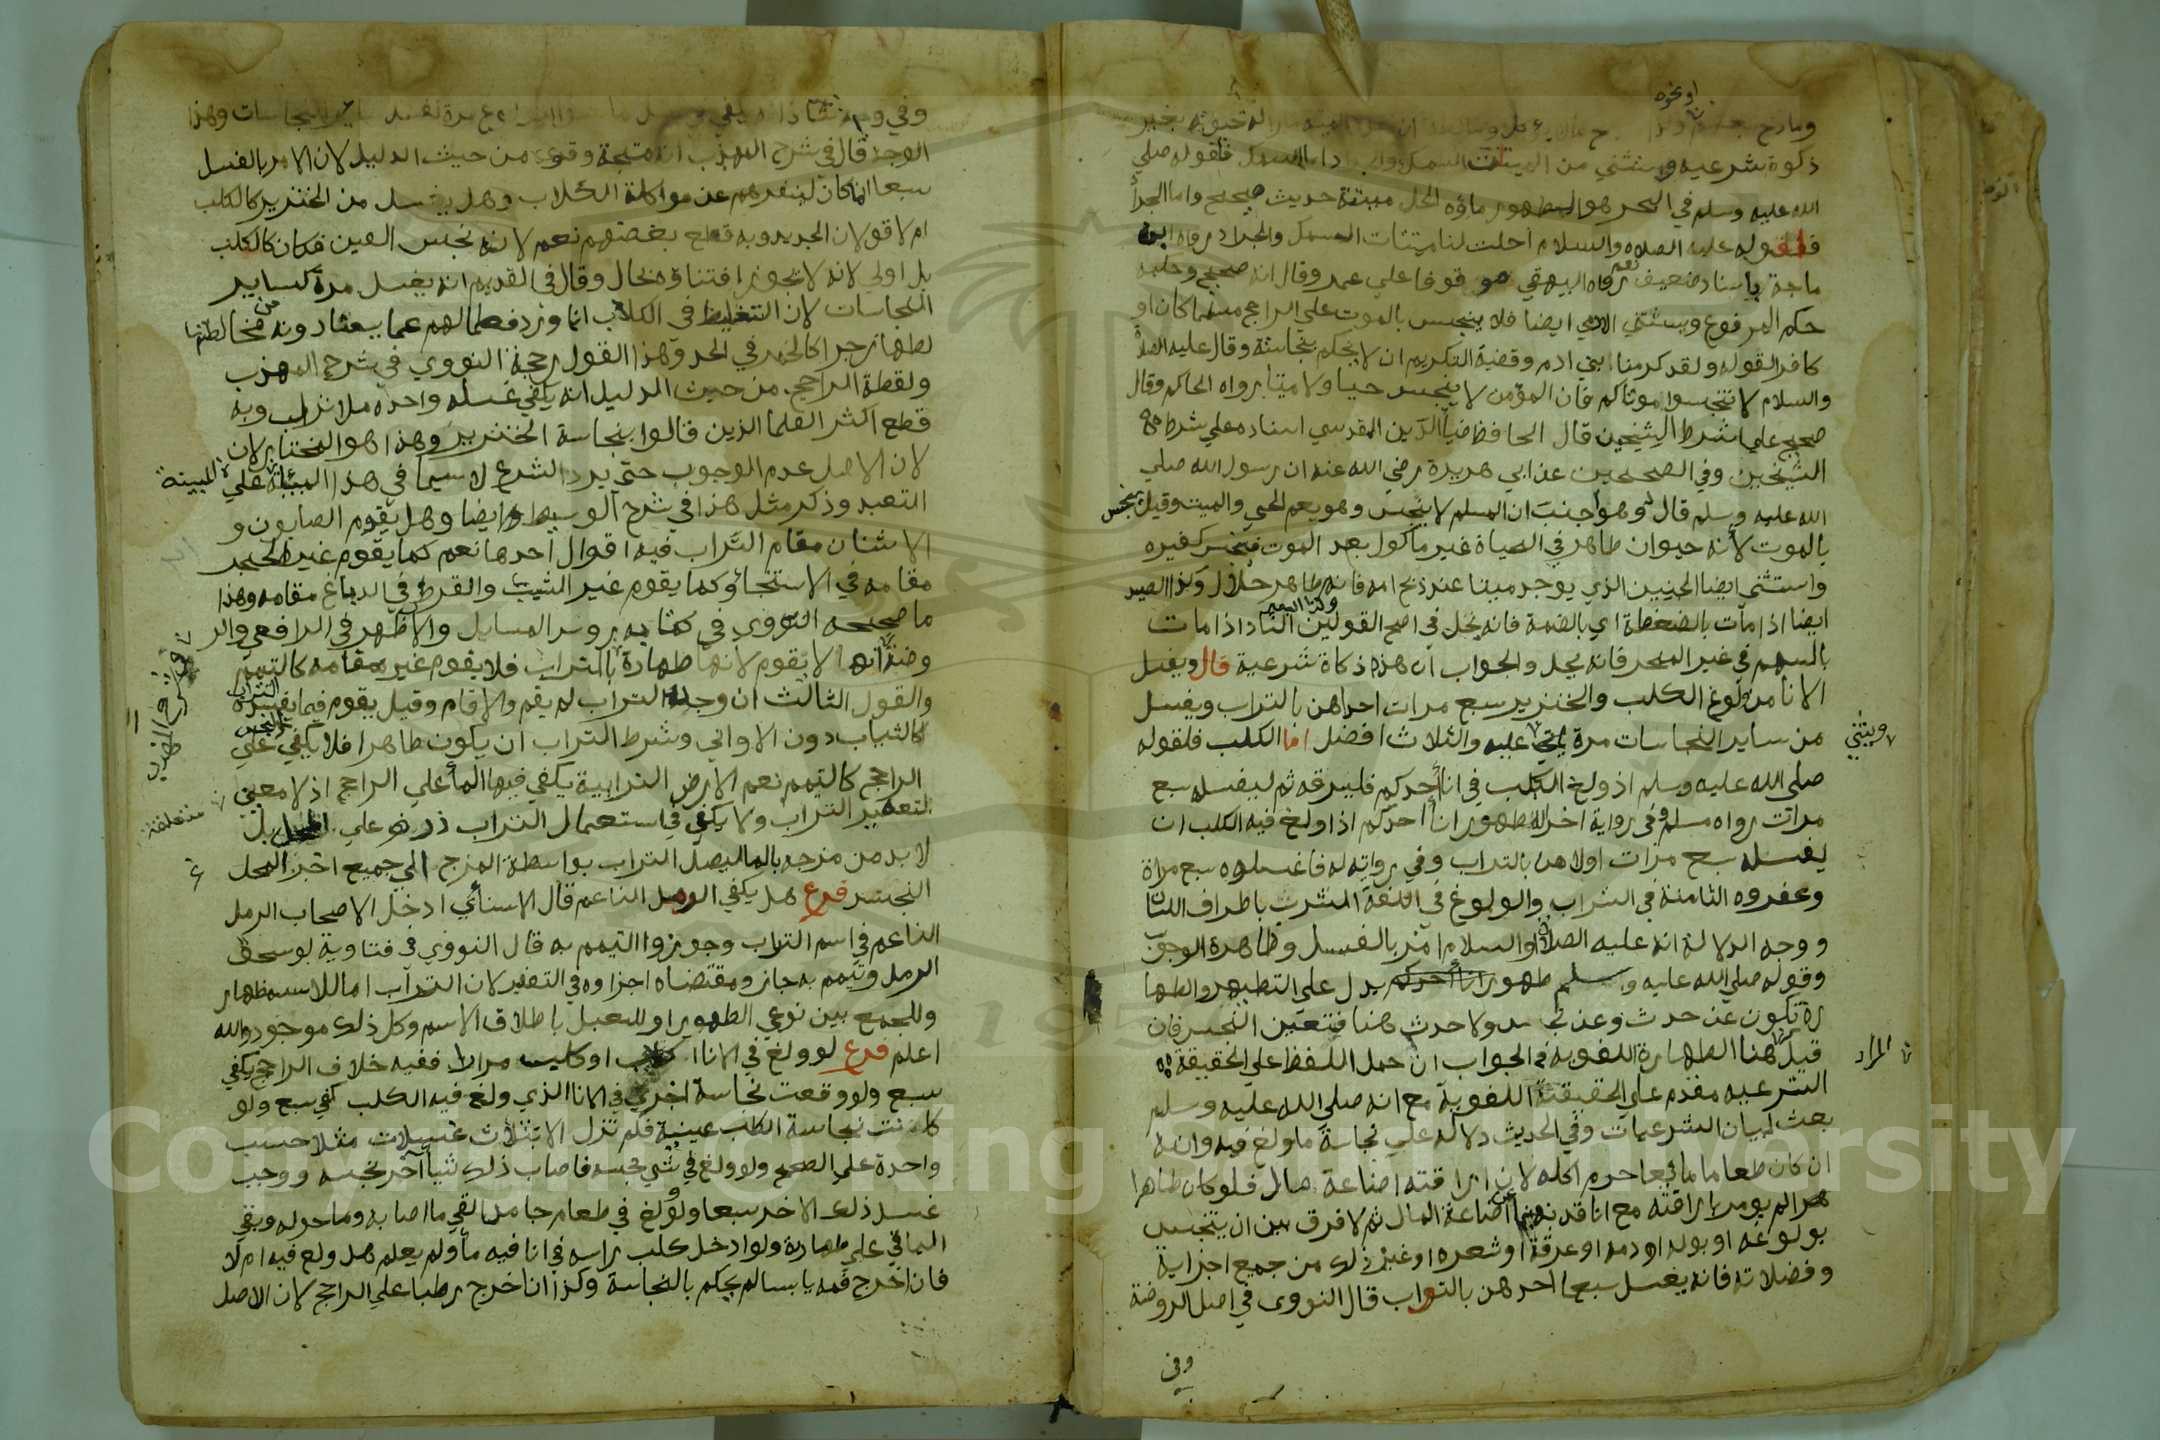 او نحوه
ذكوة شرعية ويستثني من الميتات السمك والجراد اما السمك فلقوله صلي
الله عليه وسلم في البحر هو الطهور ماؤه الحل ميتته حديث صحيح واما الجراد
فلقوله عليه الصلاه والسلام احلت لنا ميتتان السمك والجراد رواه ابن
ماجة باسناد ضعيف نعم رواه البيهقي موقوفا علي عمر وقال انه صحيح وحكمه
حكم المرفوع ويستثني الادمي ايضا فلا ينجس بالموت علي الراجح مسلما كان او
كافرا لقوله ولقد كرمنا بني ادم وقضية التكريم ان لا يحكم بنجاسته وقال عليه الصلاة
والسلام لا تنجسوا موتاكم فان المؤمن لا ينجس حيا ولا ميتا رواه الحاكم وقال
صحيح علي شرط الشيخين قال الحافظ ضيا الدين المقدسي اسناده علي شرط
الشيخين وفي الصحيحين عن ابي هريرة رضي الله عنه ان رسول الله صلي
الله عليه وسلم قال له وهو جنب ان المسلم لا ينجس وهو يعم الحي والميت وقيل ينجس
بالموت لأنه حيوان طاهر في الحياة غير ماكول بعد الموت فينجس كغيره
واستثني ايضا الجنين الذي يوجد ميتا عند ذبح امه فانه طاهر حلال وكذا الصيد
ايضا اذا مات بالضغطة اي بالضمة فانه يحل في اصح القولين وكذا البعير الناد اذا مات
بالسهم في غير المنحر فانه يحل والجواب ان هذه ذكاة شرعية قال ويغسل
الانا من ولوغ الكلب والخنزير سبع مرات احداهن بالتراب ويغسل
من ساير النجاسات مرة ياتي عليه والثلاث افضل اما الكلب فلقوله
صلي الله عليه وسلم اذ ولغ الكلب في انا أحدكم فليرقه ثم ليغسله سبع
مرات رواه مسلم وفي رواية اخر له طهور انا احدكم اذا ولغ فيه الكلب ان
يغسله سبع مرات اولاهن بالتراب وفي رواية له فاغسلوه سبع مراة
وعفروه الثامنة في التراب والولوغ في اللغة الشرب باطراف اللسان
ووجه الدلالة انه عليه الصلاة والسلام امر بالغسل وظاهره الوجوب
وقوله صلي الله عليه وسلم طهور انا أحدكم يدل علي التطهير والطها
رة تكون عن حدث وعن نجس ولا حدث هنا فتعين النجس فان
قيل هنا الطهارة اللغوية فالجواب ان حمل اللفظ علي الحقيقة
الشرعية مقدم علي الحقيقة اللغوية مع انه صلي الله عليه وسلم
بعث لبيان الشرعيات وفي الحديث دلالة علي نجاسة ما ولغ فيه وانه
ان كان طعاما مائعا حرم اكله لان اراقته اضاعة مال فلو كان طاهرا
لم يومر باراقته مع انا قد نهينا عن اضاعة المال ثم لا فرق بين ان يتنجس
بولوغه او بوله او دمه او عرقه او شعره او غير ذلك من جميع اجزاية
وفضلاته فانه يغسل سبعا احدهن بالتراب قال النووي في اصل الروضة
وفي
ويبتني
المراد
الوجه قال في شرح المهذب انه متجه وقوي من حيث الدليل لان الامر بالغسل
سبعا انما كان لينفرهم عن مواكلة الكلاب وهل يغسل من الخنزير كالكلب
ام لا قولان الجديد وبه قطع بعضهم نعم لانه نجس العين فكان كالكلب
بل اولي لانه لا يجوز اقتناؤه بحال وقال في القديم انه يغسل مرة كساير
النجاسات لان التغليظ في الكلاب انما ورد فطما لهم عما يعتادونه من مخالطتها
لطها زجرا كالخمر في الحد وهذا القول رجحه النووي في شرح المهذب
ولفظه الراجح من حيث الدليل انه يكفي غسله واحدة بلا تراب وبه
قطع اكثر العلما الذين قالوا بنجاسة الخنزير وهذا هو المختار لان
لان الاصل عدم الوجوب حتي يرد الشرع لا سيما في هذا المبنية علي
التعبد وذكر مثل هذا في شرح الوسيط ايضا وهل يقوم الصابون و
الاشنان مقام التراب فيه اقوال احدها نعم كما يقوم غير الحجر
مقامه في الاستنجا وكما يقوم غير الشب والقرظ في الدباغ مقامه وهذا
ما صححه النووي في كتابه روس المسايل والاظهر في الرافعي والر
وضة انها لا يقوم لانها طهارة بالتراب فلا يقوم غيره مقامه كالتيمم
والقول الثالث ان وجد التراب لم يقم والا قام وقيل يقوم فيما يفسده التراب
كالثياب دون الاواني وشرط التراب ان يكون طاهرا فلا يكفي النجس علي
الراجح كالتيمم نعم الارض الترابية يكفي فيها الما علي الراجح اذ لا معني
لتعفير التراب ولا يكفي في استعمال التراب ذره علي المحل بل
لا بد من مزجه بالما ليصل التراب بواسطة المزج الي جميع اجزا المحل
النجس فرع هل يكفي الرمل الناعم قال الاسنائي ادخل الاصحاب الرمل
الناعم في اسم التراب وجوزوا التيمم به قال النووي في فتاوية لو سحق
الرمل وتيمم به جاز ومقتضاه اجزاوه في التعفير لان التراب اما للاستظهار
وللجمع بين نوعي الطهور او للتعبد باطلاق الاسم وكل ذلك موجود والله
اعلم فرع لو ولغ في الانا كلاب او كلب مرارا ففيه خلاف الراجح يكفي
سبع ولو وقعت نجاسة اخري في الانا الذي ولغ فيه الكلب كفي سبع ولو
كانت نجاسة الكلب عينية فلم تزل الا بثلاث غسلات مثلا حسب
واحدة علي الصحيح ولو ولغ في شي نجسه فاصاب ذلك شيأ آخر نجسه ووجب
غسل ذلك الاخر سبعا ولو ولغ في طعام جامد القي ما اصابه وما حوله وبقي
الباقي علي طهارته ولو ادخل كلب راسه في انا فيه مأ ولم يعلم هل ولغ فيه ام لا
فان اخرج فمه يابسا لم يحكم بالنجاسة وكذا ان اخرج رطبا علي الراجح لان الاصل
متعلقة
Copyright © King Saud University
1957